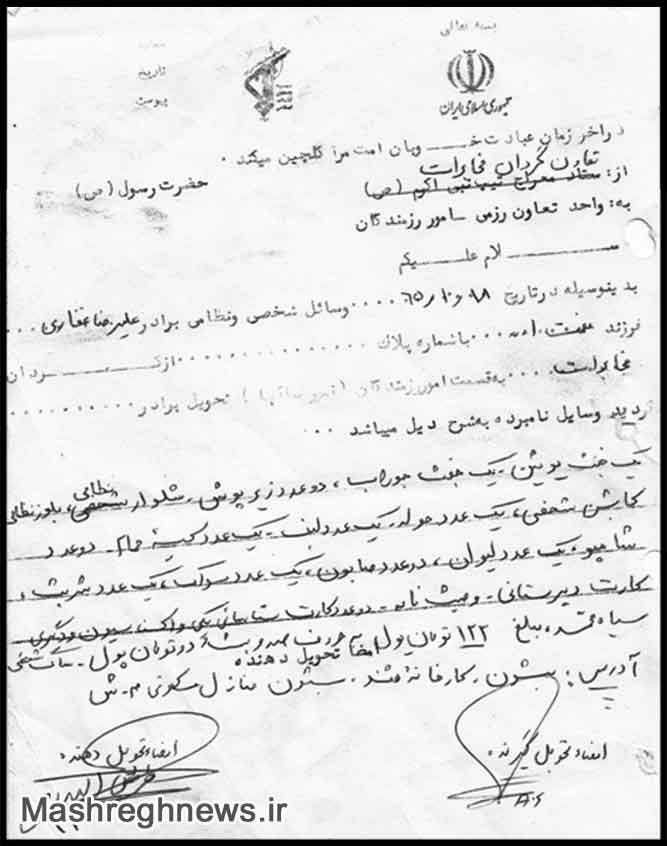 بسمه تعالی
شماره
تاریخ
پیوست
جمهوری اسلامی ایران
در اخر زمان عبادت خوبان امت مرا گلچین میکند.
حضرت رسول (ص)
تعاون گردان مخابرات
از: ستاد معراج تیپ نبی اکرم (ص)
به: واحد تعاون رزمی امور رزمندگان
سلام علیکم
بدینوسیله در تاریخ ۶۵/۱۰/۱۸ وسائل شخصی ونظامی برادر علیرضا غفاری
فرزند باشماره پلاک از گردان
مخابرات به قسمت امور رزمندگان ( ) تحویل برادر
گردید وسایل نامبرده به شرح ذیل میباشد
یک جفت پوتین - یک جفت جوراب، دو عدد زیرپوش - شلوار شخصی نظامی، بلوز نظامی
شخصی، یک عدد حوله - یک عدد لیف - یک عدد کیسه حمام - دو عدد
شامپو، یک عدد لیوان، دو عدد صابون، یک عدد مسواک، یک عدد شربت،
کارت دبیرستانی - وصیت نامه - دو عدد کارت شناسائی یکی و دیگری
سپاه مبلغ ۱۲۲ تومان پول به حروف صدو بیست و دو تومان پول - ساک شخصی
امضاء تحویل دهنده
آدرس: بیستون - کارخانه قند - بیستون منازل مسکونی
امضاء تحویل گیرنده
امضاء تحویل دهنده
Mashreghnews.ir